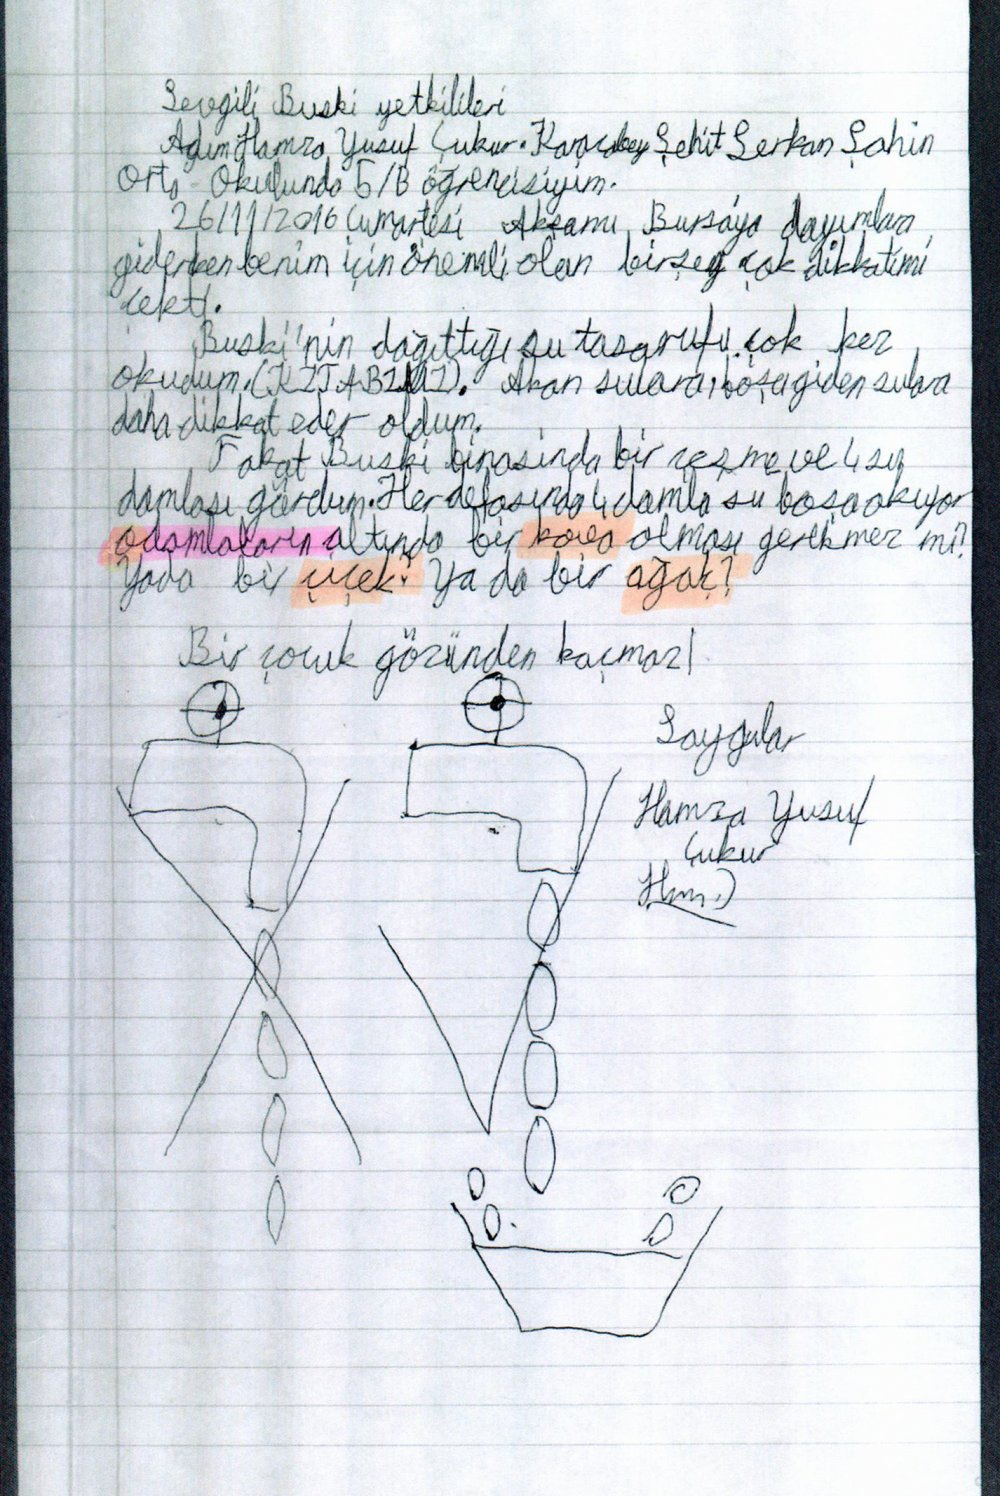 Sevgili Buski yetkilileri
Adım Hamza Yusuf Çukur. Karacabey Şehit Serkan Şahin
Orta Okulunda 5/B öğrencisiyim.
26/11/2016 Cumartesi Akşamı Bursaya dayımlara
giderken benim için önemli olan birşey çok dikkatimi
çekti.
Buski'nin dağıttığı su tasarufu çok kez
okudum. (KİTABINI). Akan sulara, boşa giden sulara
daha dikkat eder oldum.
Fakat Buski binasında bir çeşme ve 4 su
damlası gördüm. Her defasında 4 damla su boşa akıyor
o damlaların altında bir kova olması gerekmez mi?
Yada bir çiçek? Ya da bir ağaç?
Bir çocuk gözünden kaçmaz!
Saygılar
Hamza Yusuf
Çukur